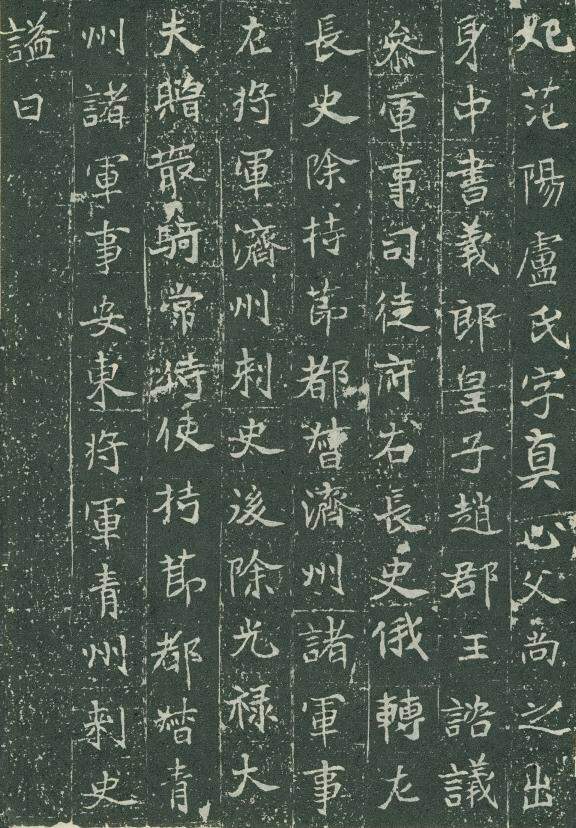 妃范陽盧氏字真心父尚之出
身中書義郎皇子趙郡王諮議
叅軍事司徒府右長史俄轉左
長史除持節都督濟州諸軍事
左將軍濟州刺史後除光祿大
夫贈散騎常侍使持節都督青
州諸軍事安東將軍青州刺史
謚曰